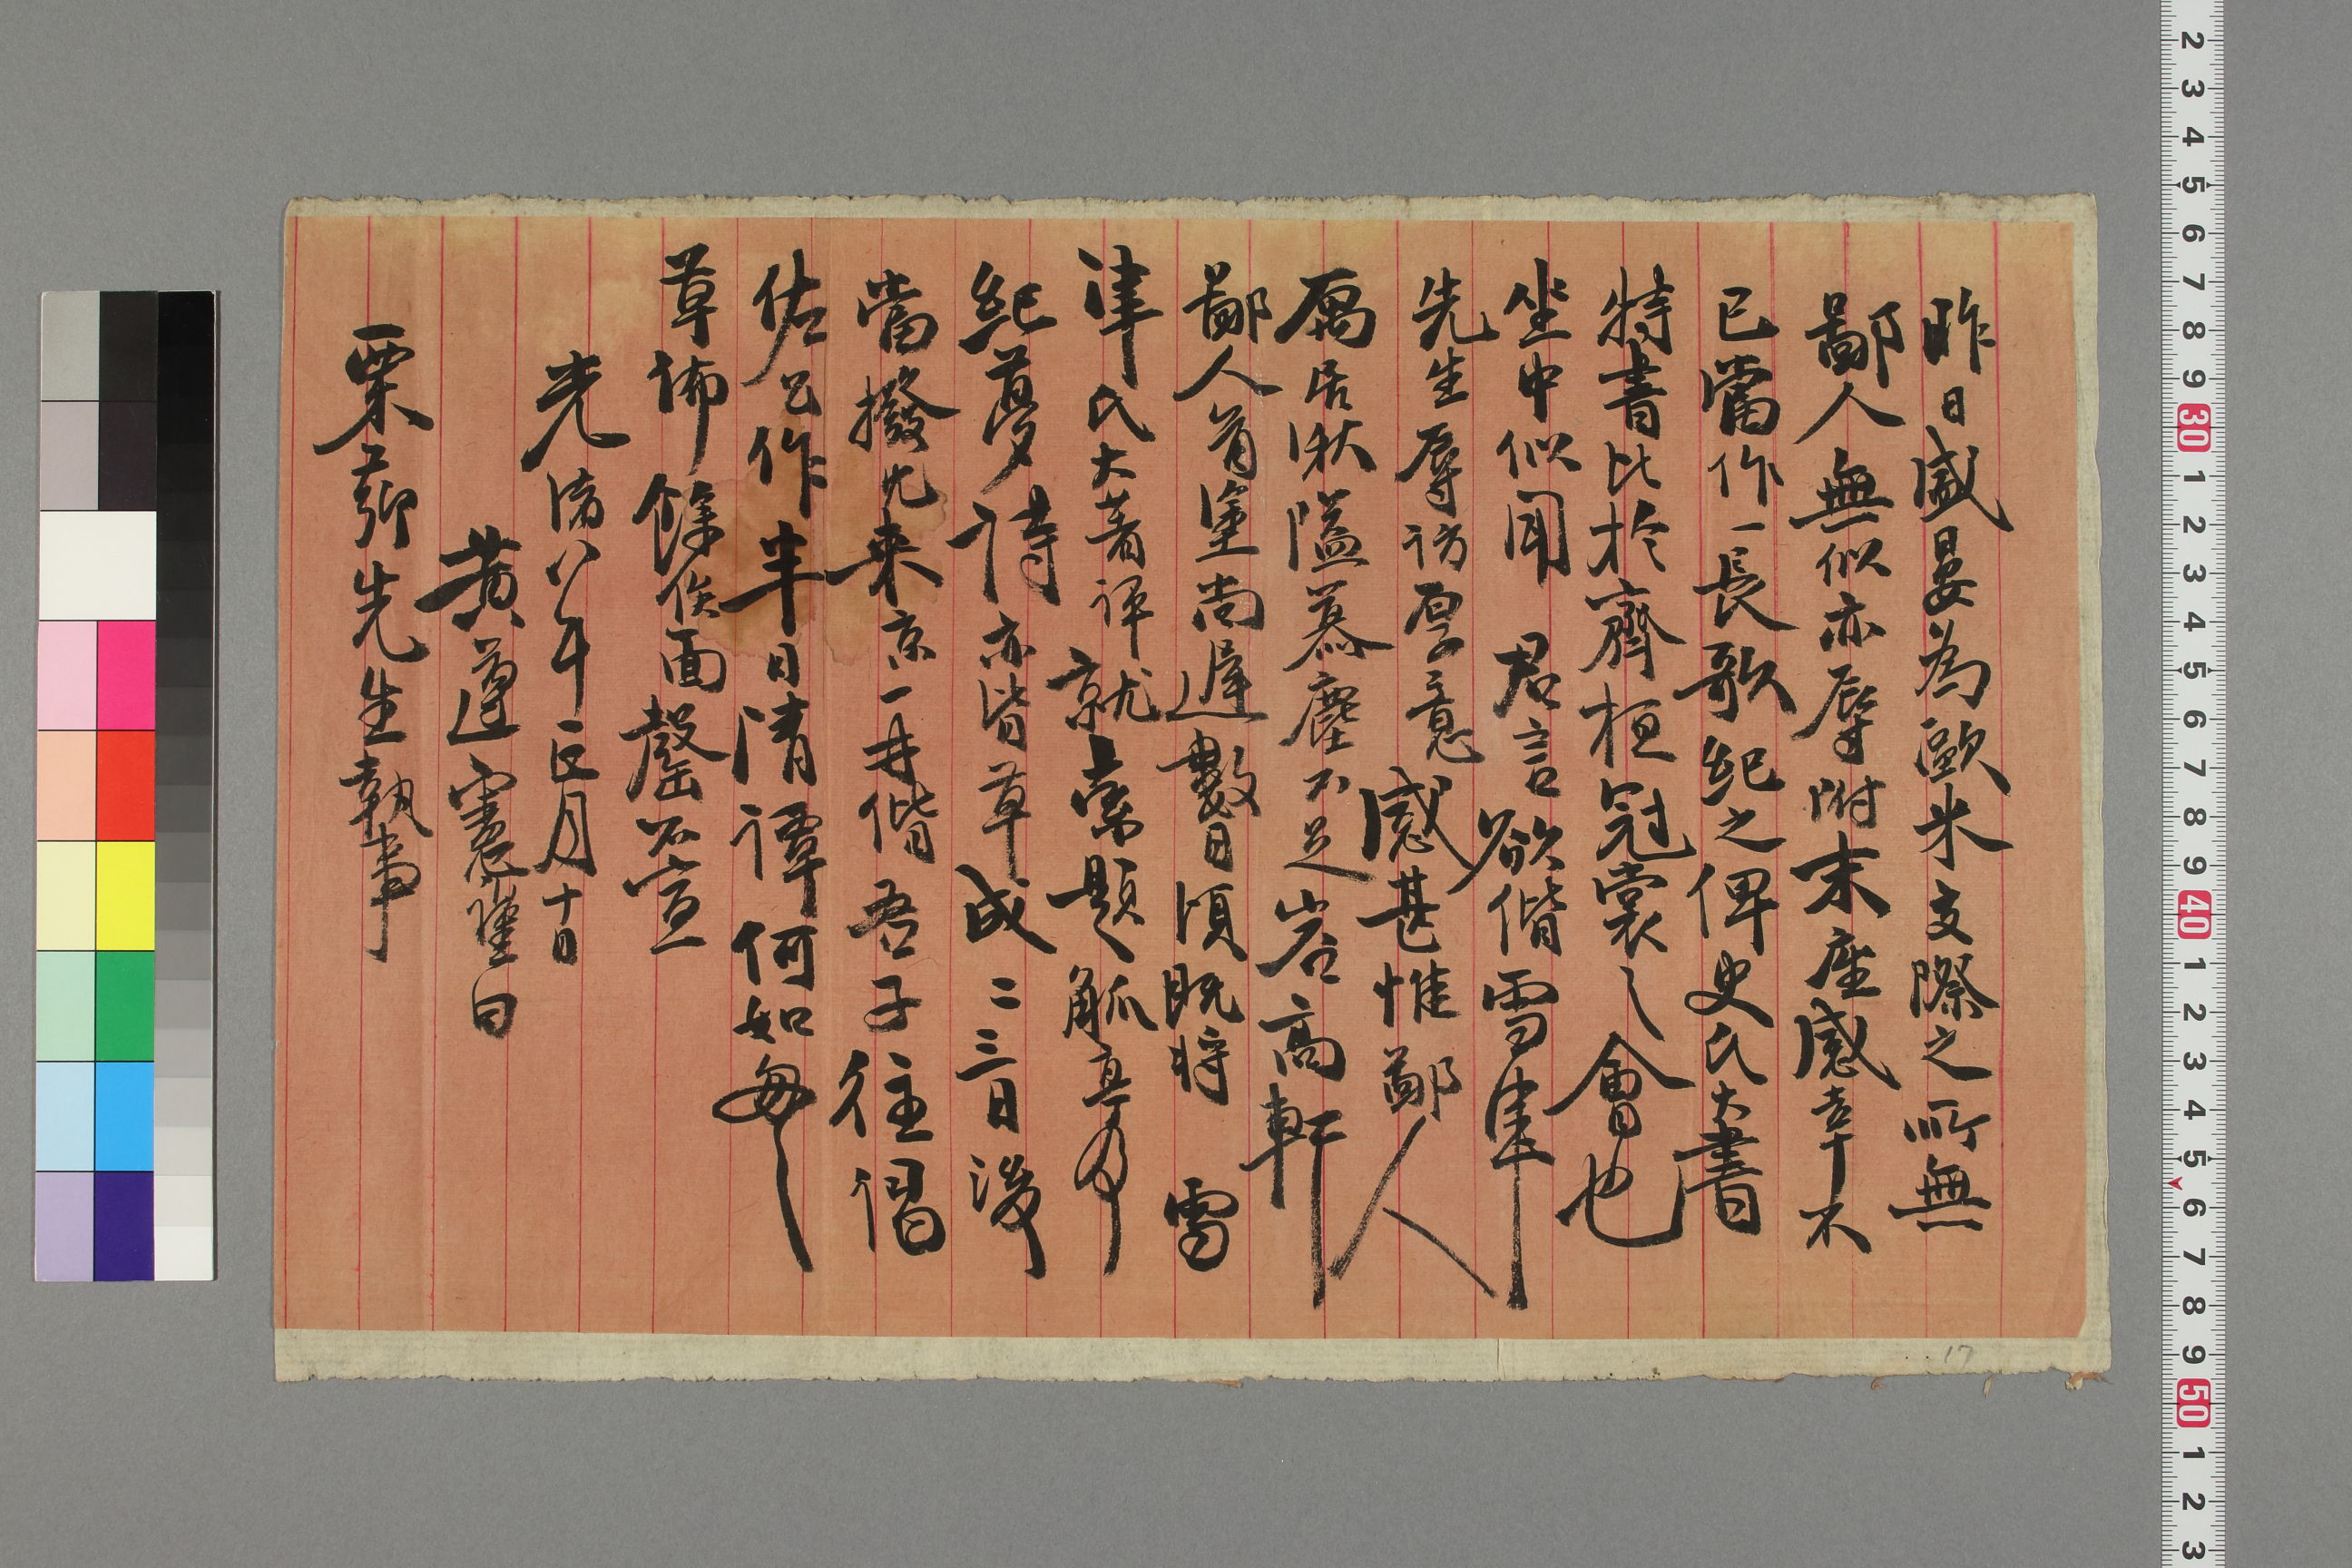 昨日盛宴為歐米交際之所無
鄙人無似亦辱附末座感幸不
已當作一長歌紀之俾史氏大書
特書比於齊桓冠裳之會也
坐中似聞 君言欲偕雪津
先生辱訪厚意感甚惟鄙人
寓居湫隘塵不足容高軒
鄙人尚遲數日頃既將 雪
津氏大著評就索題觚亭
紀夢詩亦皆草成二三日後
當撥冗來京一并偕吾子往謁
佐公作半日清譚何如匆々
草佈餘俟面罄不宣
光緒八年正月十日
黃遵憲謹白
栗薌先生執事
17